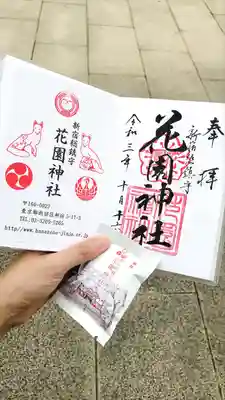 奉拝
新宿総鎮守
花園神社
令和三年十月十
新宿総鎮守
花園神社
〒160-0022
東京都新宿区新宿5-17-3
TEL 03-3209-5265
http://www.hanazono-jinja.or.jp